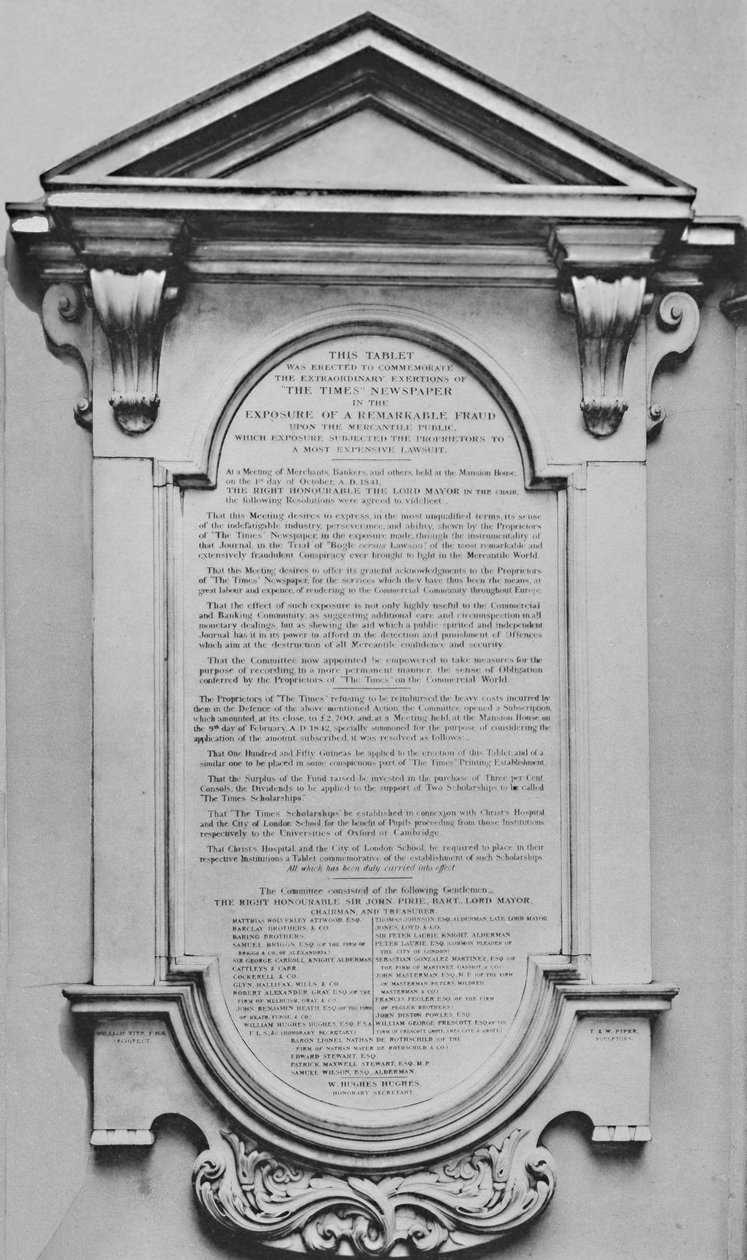 THIS TABLET
WAS ERECTED TO COMMEMORATE
THE EXTRAORDINARY EXERTIONS OF
"THE TIMES" NEWSPAPER
IN THE
EXPOSURE OF A REMARKABLE FRAUD
UPON THE MERCANTILE PUBLIC,
WHICH EXPOSURE SUBJECTED THE PROPRIETORS TO
A MOST EXPENSIVE LAWSUIT.
At a Meeting of Merchants, Bankers, and others, held at the Mansion House,
on the 1st day of October, A.D. 1841,
THE RIGHT HONOURABLE THE LORD MAYOR IN THE CHAIR,
the following Resolutions were agreed to, videlicet _
That this Meeting desires to express, in the most unqualified terms, its sense
of the indefatigable industry, perseverance, and ability, shewn by the Proprietors
of "The Times" Newspaper, in the exposure made, through the instrumentality of
that Journal, in the Trial of "Bogle versus Lawson," of the most remarkable and
extensively fraudulent Conspiracy ever brought to light in the Mercantile World.
That this Meeting desires to offer its grateful acknowledgments to the Proprietors
of "The Times" Newspaper, for the services which they have thus been the means, at
great labour and expence, of rendering to the Commercial Community throughout Europe.
That the effect of such exposure is not only highly useful to the Commercial
and Banking Community, as suggesting additional care and circumspection in all
monetary dealings, but as shewing the aid which a public spirited and independent
Journal has it in its power to afford in the detection and punishment of Offences
which aim at the destruction of all Mercantile confidence and security.
That the Committee now appointed be empowered to take measures for the
purpose of recording, in a more permanent manner, the sense of Obligation
conferred by the Proprietors of "The Times" on the Commercial World.
The Proprietors of "The Times" refusing to be reimbursed the heavy costs incurred by
them in the Defence of the above mentioned Action, the Committee opened a Subscription,
which amounted, at its close, to £2,700, and, at a Meeting held, at the Mansion House, on
the 9th day of February, A.D. 1842, specially summoned for the purpose of considering the
application of the amount subscribed, it was resolved as follows:_
That One Hundred and Fifty Guineas be applied to the erection of this Tablet, and of a
similar one to be placed in some conspicuous part of "The Times" Printing Establishment.
That the Surplus of the Fund raised be invested in the purchase of Three per Cent.
Consols, the Dividends to be applied to the support of Two Scholarships, to be called
"The Times Scholarships."
That "The Times Scholarships" be established in connexion with Christ's Hospital
and the City of London School, for the benefit of Pupils proceeding from those Institutions
respectively to the Universities of Oxford or Cambridge.
That Christ's Hospital, and the City of London School, be required to place in their
respective Institutions a Tablet commemorative of the establishment of such Scholarships.
All which has been duly carried into effect.
The Committee consisted of the following Gentlemen:_
THE RIGHT HONOURABLE SIR JOHN PIRIE, BART., LORD MAYOR,
CHAIRMAN, AND TREASURER.
MATTHIAS WOLVERLEY ATTWOOD, ESQ.
BARCLAY BROTHERS, & CO.
BARING BROTHERS.
SAMUEL BRIGGS, ESQ. (OF THE FIRM OF
BRIGGS & CO. OF ALEXANDRIA)
SIR GEORGE CARROLL, KNIGHT, ALDERMAN
CATTLEYS & CARR.
COCKERELL & CO.
GLYN, HALLIFAX, MILLS, & CO.
ROBERT ALEXANDER GRAY, ESQ. (OF THE
FIRM OF MELHUISH, GRAY, & CO.)
JOHN BENJAMIN HEATH, ESQ. (OF THE FIRM
OF HEATH, FURSE, & CO.)
WILLIAM HUGHES HUGHES, ESQ. F.S.A.
F.L.S., &c (HONORARY SECRETARY)
THOMAS JOHNSON, ESQ., ALDERMAN, LATE LORD MAYOR.
JONES, LOYD, & CO.
SIR PETER LAURIE, KNIGHT, ALDERMAN
PETER LAURIE, ESQ. (COMMON PLEADER OF
THE CITY OF LONDON)
SEBASTIAN GONZALEZ MARTINEZ, ESQ. (OF
THE FIRM OF MARTINEZ, GASSIOT, & CO.)
JOHN MASTERMAN, ESQ. M.P. (OF THE FIRM
OF MASTERMAN, PETERS, MILDRED,
MASTERMAN, & CO.)
FRANCIS PEGLER, ESQ. (OF THE FIRM
OF PEGLER BROTHERS)
JOHN DISTON POWLES, ESQ.
WILLIAM GEORGE PRESCOTT, ESQ. (OF THE
FIRM OF PRESCOTT, GROTE, AMES, CAVE & GROTE)
BARON LIONEL NATHAN DE ROTHSCHILD, (OF THE
FIRM OF NATHAN MAYER DE ROTHSCHILD, & CO.)
EDWARD STEWART, ESQ.
PATRICK MAXWELL STEWART, ESQ. M.P.
SAMUEL WILSON, ESQ., ALDERMAN.
W. HUGHES HUGHES,
HONORARY SECRETARY.
WILLIAM TITE, F.R.S.
ARCHITECT.
T. & W. PIPER,
SCULPTORS.